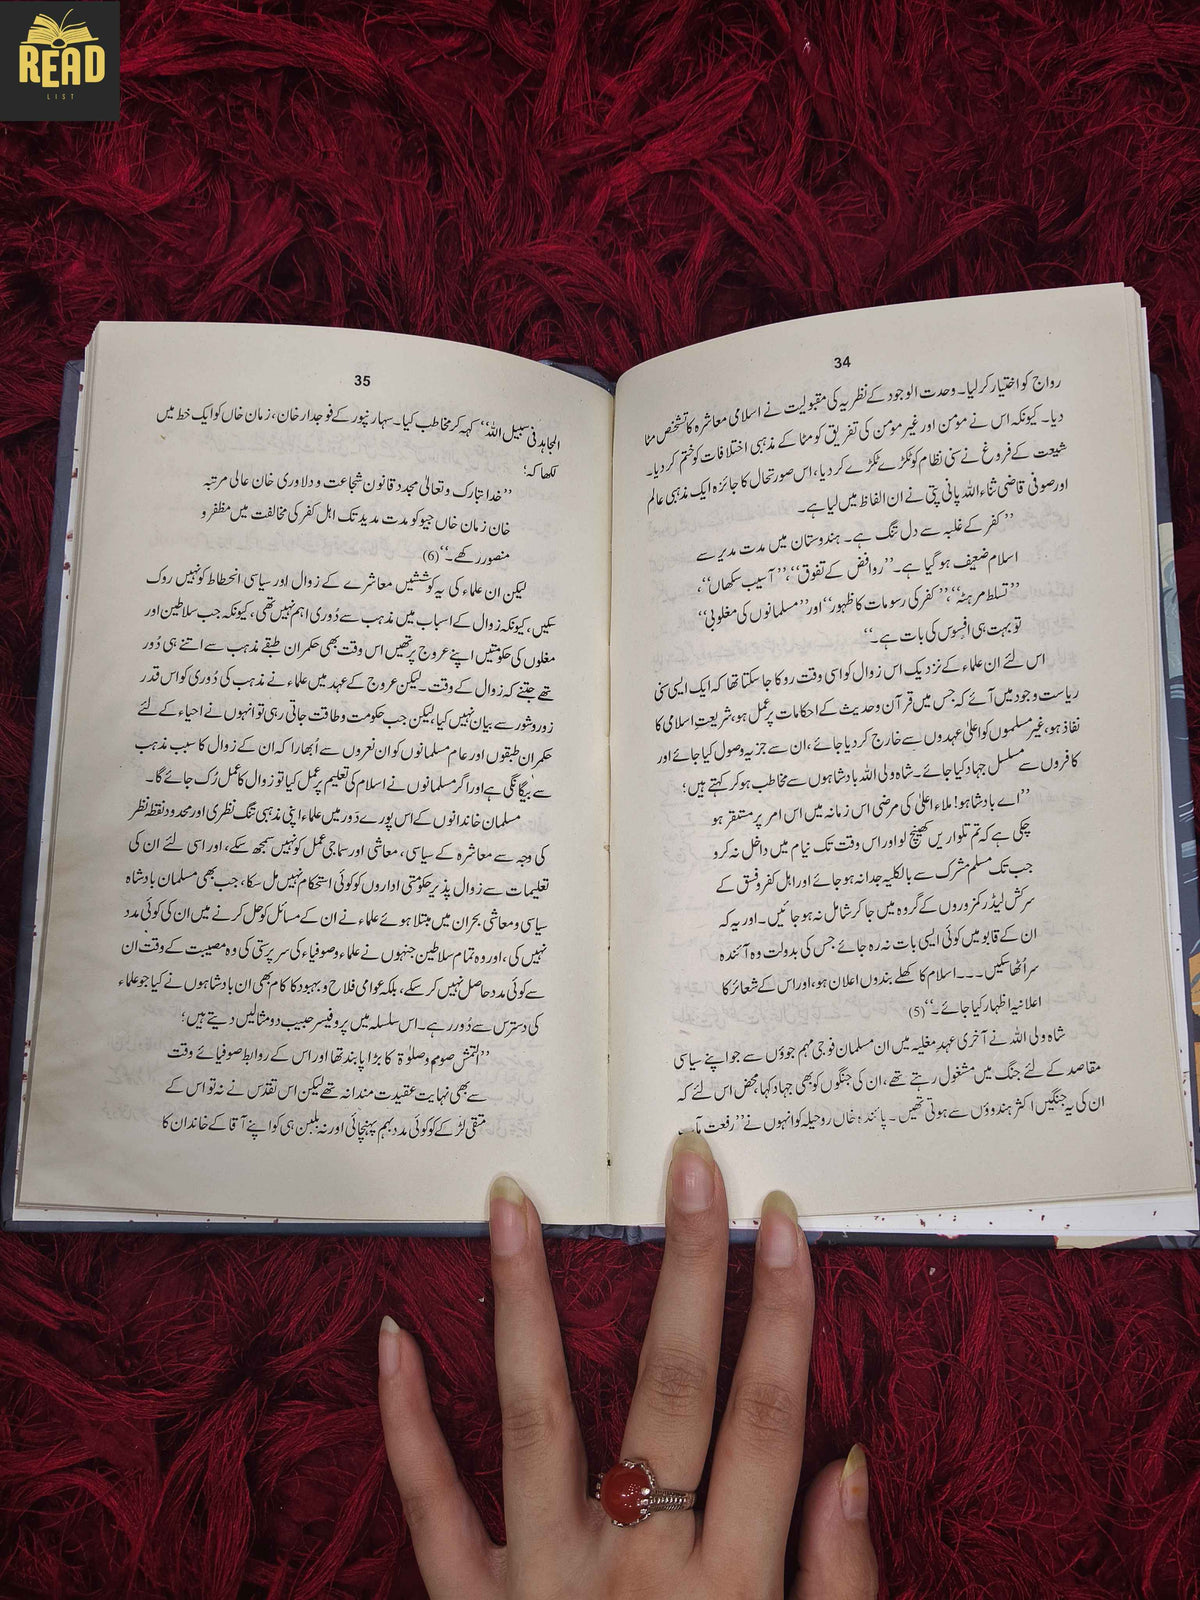 READ
LIST
34
رواج کو اختیار کر لیا۔ وحدت الوجود کے نظریہ کی مقبولیت نے اسلامی معاشرہ کا تشخص مٹا
دیا۔ کیونکہ اس نے مومن اور غیر مومن کی تفریق کو مٹا کے مذہبی اختلافات کو ختم کر دیا۔
شیعت کے فروغ نے سنی نظام کو ٹکڑے ٹکڑے کر دیا، اس صورتحال کا جائزہ ایک مذہبی عالم
اور صوفی قاضی ثناء اللہ پانی پتی نے ان الفاظ میں لیا ہے۔
’’کفر کے غلبہ سے دل تنگ ہے۔ ہندوستان میں مدت مدیر سے
اسلام ضعیف ہو گیا ہے۔ ’’روافض کے تفوق‘‘، ’’آسیب سکھاں‘‘،
’’تسلط مرہٹہ‘‘، ’’کفر کی رسومات کا ظہور‘‘ اور ’’مسلمانوں کی مغلوبی‘‘
تو بہت ہی افسوس کی بات ہے۔‘‘
اس لئے ان علماء کے نزدیک اس زوال کو اسی وقت روکا جا سکتا تھا کہ ایک ایسی سنی
ریاست وجود میں آئے کہ جس میں قرآن و حدیث کے احکامات پر عمل ہو، شریعتِ اسلامی کا
نفاذ ہو، غیر مسلموں کو اعلیٰ عہدوں سے خارج کر دیا جائے، ان سے جزیہ وصول کیا جائے اور
کافروں سے مسلسل جہاد کیا جائے۔ شاہ ولی اللہ بادشاہوں سے مخاطب ہو کر کہتے ہیں؛
’’اے بادشاہو! ملاء اعلیٰ کی مرضی اس زمانہ میں اس امر پر مستقر ہو
چکی ہے کہ تم تلواریں کھینچ لو اور اس وقت تک نیام میں داخل نہ کرو
جب تک مسلم مشرک سے بالکلیہ جدا نہ ہو جائے اور اہل کفر و فسق کے
سرکش لیڈر کمزوروں کے گروہ میں جا کر شامل نہ ہو جائیں۔ اور یہ کہ
ان کے قابو میں کوئی ایسی بات نہ رہ جائے جس کی بدولت وہ آئندہ
سر اُٹھا سکیں۔۔۔ اسلام کا کھلے بندوں اعلان ہو، اور اس کے شعائر کا
اعلانیہ اظہار کیا جائے۔‘‘(5)
شاہ ولی اللہ نے آخری عہدِ مغلیہ میں ان مسلمان فوجی مہم جوؤں سے جو اپنے سیاسی
مقاصد کے لئے جنگ میں مشغول رہتے تھے، ان کی جنگوں کو بھی جہاد کہا، محض اس لئے کہ
ان کی یہ جنگیں اکثر ہندوؤں سے ہوتی تھیں۔ پائندہ خاں روحیلہ کو انہوں نے ’’رفعت
35
المجاہد فی سبیل اللہ‘‘ کہہ کر مخاطب کیا۔ سہارنپور کے فوجدار خان، زمان خاں کو ایک خط میں
لکھا کہ؛
’’خدا تبارک و تعالیٰ مجدد قانون شجاعت و دلاوری خان عالی مرتبہ
خان زمان خاں جیو کو مدت مدید تک اہل کفر کی مخالفت میں مظفر و
منصور رکھے۔‘‘(6)
لیکن ان علماء کی یہ کوششیں معاشرے کے زوال اور سیاسی انحطاط کو نہیں روک
سکیں، کیونکہ زوال کے اسباب میں مذہب سے دُوری اہم نہیں تھی، کیونکہ جب سلاطین اور
مغلوں کی حکومتیں اپنے عروج پر تھیں اس وقت بھی حکمران طبقے مذہب سے اتنے ہی دُور
تھے جتنے کہ زوال کے وقت۔ لیکن عروج کے عہد میں علماء نے مذہب کی دُوری کو اس قدر
زور و شور سے بیان نہیں کیا، لیکن جب حکومت و طاقت جاتی رہی تو انہوں نے احیاء کے لئے
حکمران طبقوں اور عام مسلمانوں کو ان نعروں سے اُبھارا کہ ان کے زوال کا سبب مذہب
سے بیگانگی ہے اور اگر مسلمانوں نے اسلام کی تعلیم پر عمل کیا تو زوال کا عمل رُک جائے گا۔
مسلمان خاندانوں کے اس پورے دَور میں علماء اپنی مذہبی تنگ نظری اور محدود نقطۂ نظر
کی وجہ سے معاشرہ کے سیاسی، معاشی اور سماجی عمل کو نہیں سمجھ سکے، اور اسی لئے ان کی
تعلیمات سے زوال پذیر حکومتی اداروں کو کوئی استحکام نہیں مل سکا، جب بھی مسلمان بادشاہ
سیاسی و معاشی بحران میں مبتلا ہوئے علماء نے ان کے مسائل کو حل کرنے میں ان کی کوئی مدد
نہیں کی، اور وہ تمام سلاطین جنہوں نے علماء و صوفیاء کی سرپرستی کی وہ مصیبت کے وقت ان
سے کوئی مدد حاصل نہیں کر سکے، بلکہ عوامی فلاح و بہبود کا کام بھی ان بادشاہوں نے کیا جو علماء
کی دسترس سے دُور رہے۔ اس سلسلہ میں پروفیسر حبیب دو مثالیں دیتے ہیں؛
’’التمش صوم و صلوٰۃ کا بڑا پابند تھا اور اس کے روابط صوفیائے وقت
سے بھی نہایت عقیدت مندانہ تھے لیکن اس تقدّس نے نہ تو اس کے
متقی لڑکے کو کوئی مدد بہم پہنچائی اور نہ بلبن ہی کو اپنے آقا کے خاندان کا